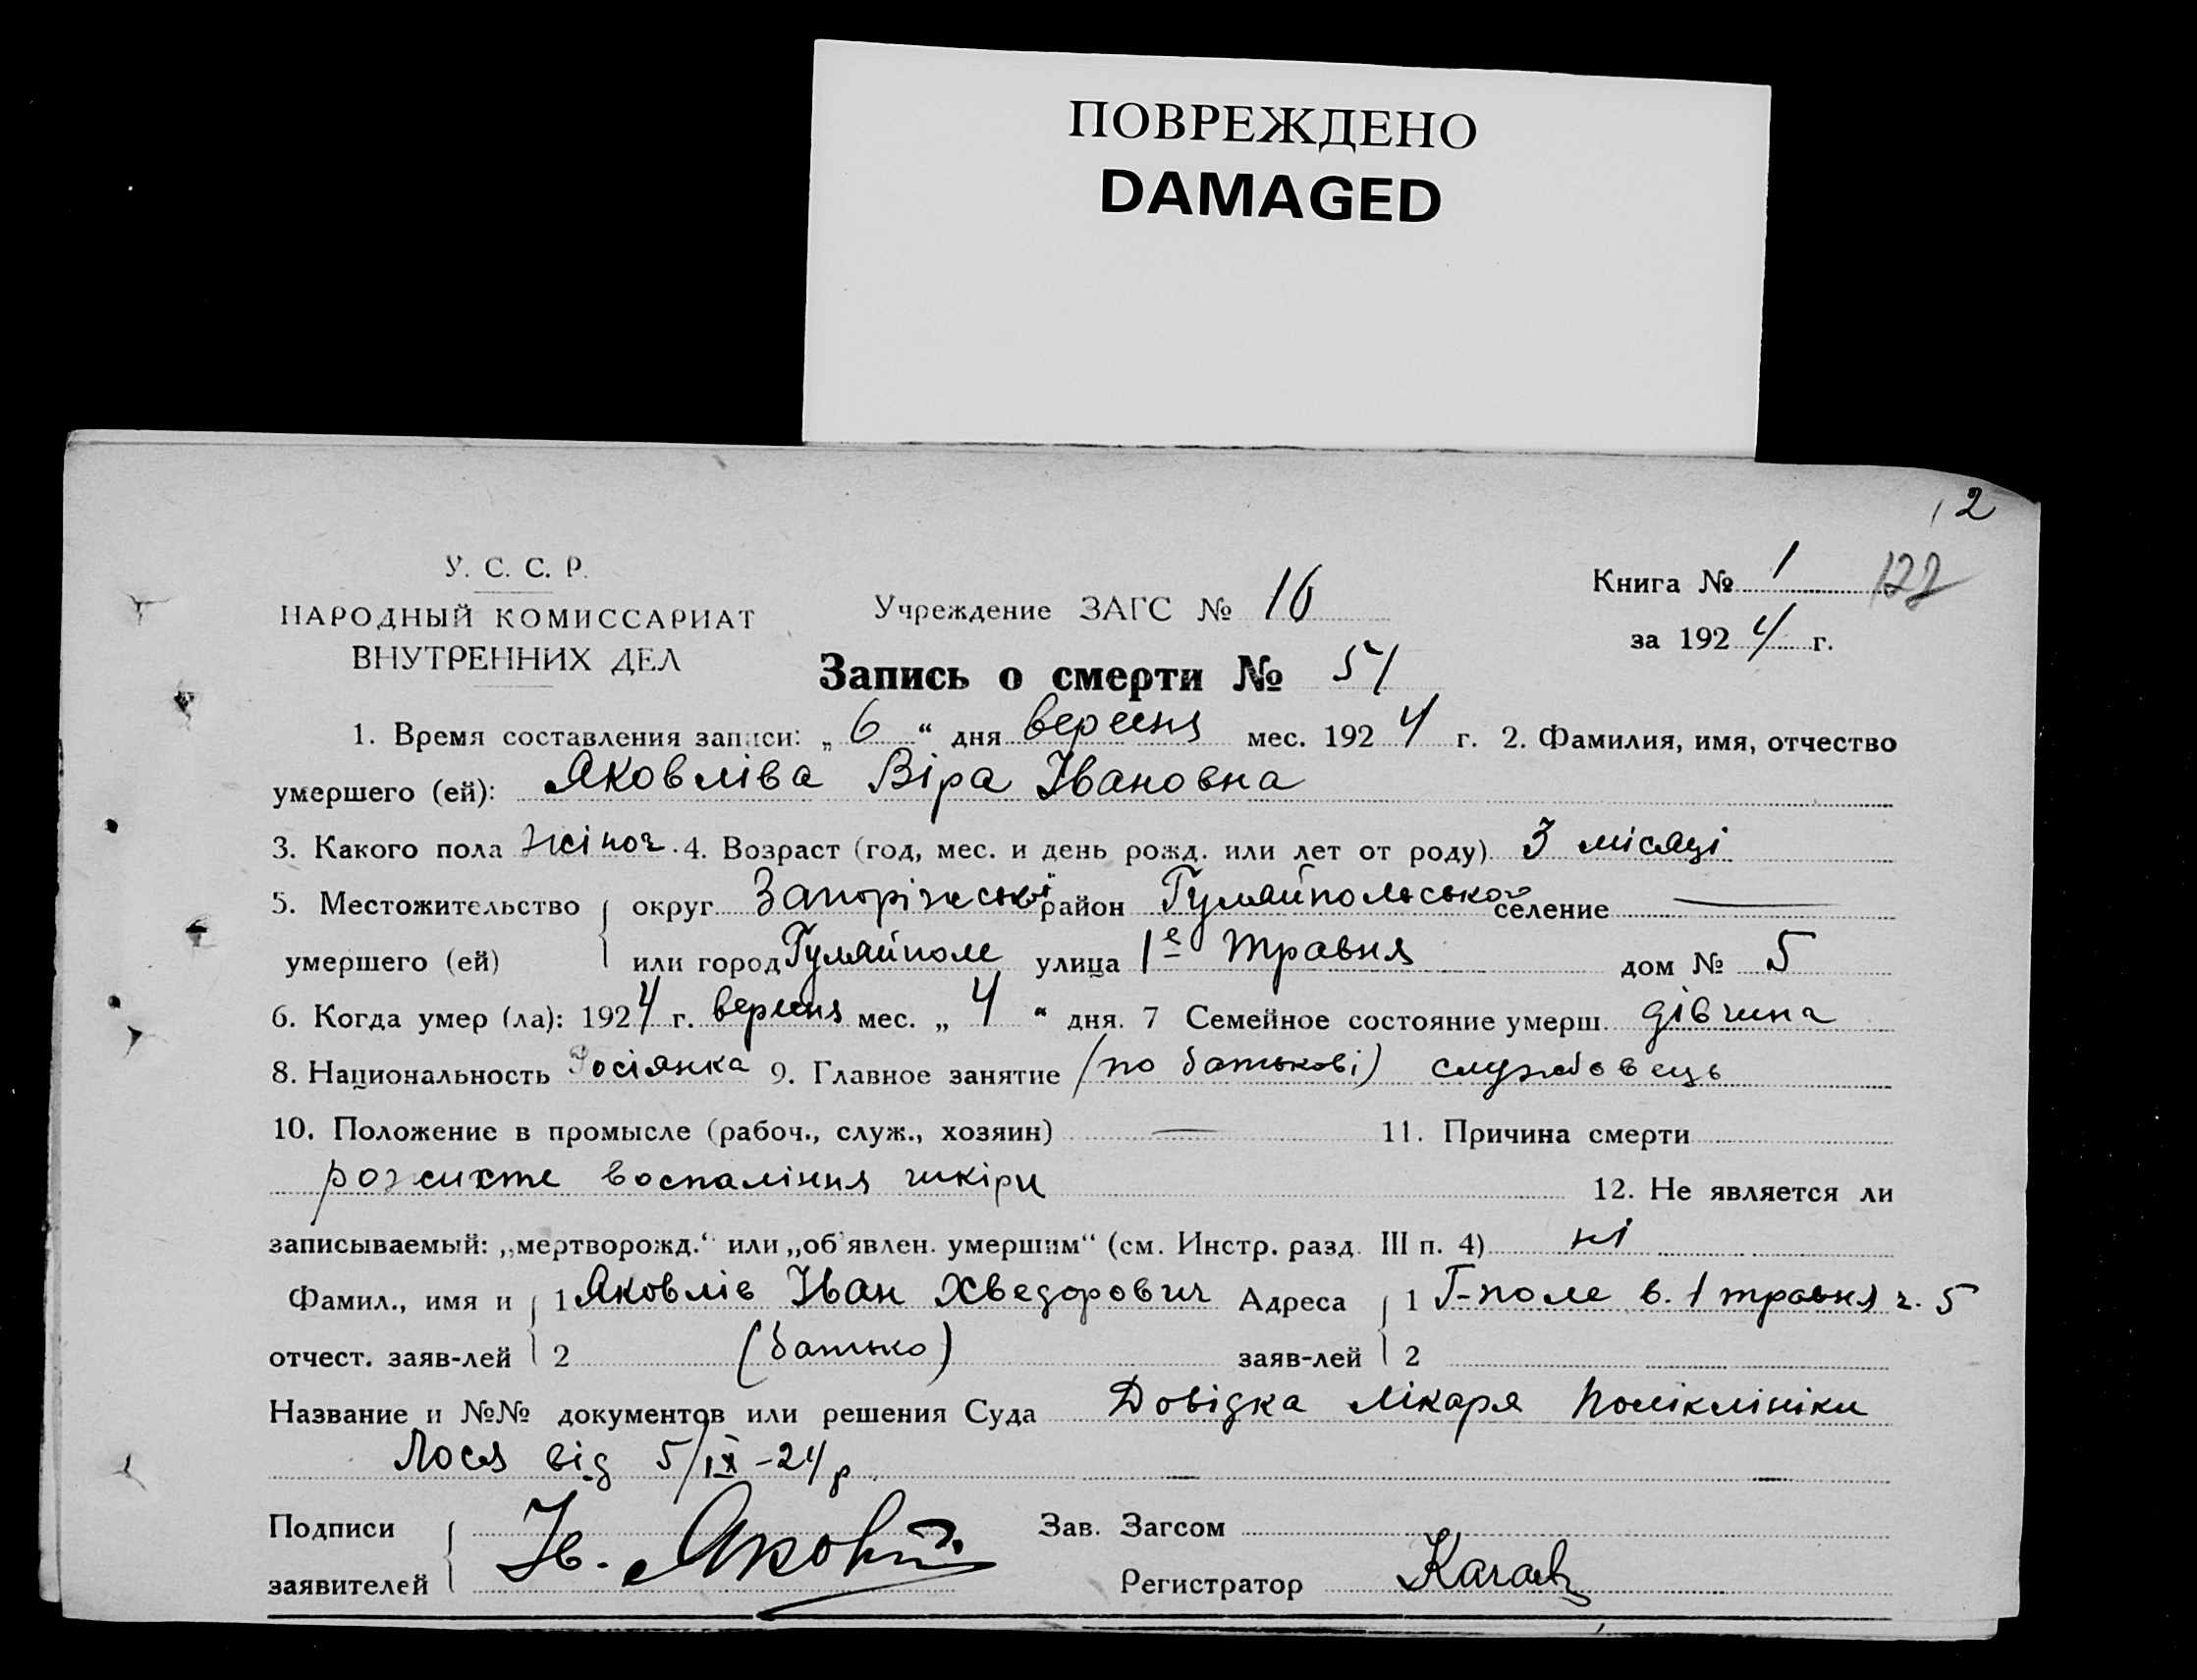 ПОВРЕЖДЕНО
DAMAGED
2
У. С. С. Р.
НАРОДНЫЙ КОМИССАРИАТ
ВНУТРЕННИХ ДЕЛ
Учреждение ЗАГС № 16
Книга № 1 122
за 1924 г.
Запись о смерти № 51
1. Время составления записи: „6“ дня вересня мес. 1924 г. 2. Фамилия, имя, отчество
умершего (ей): Яковліва Віра Івановна
3. Какого пола жіноч. 4. Возраст (год, мес. и день рожд. или лет от роду) 3 місяці
5. Местожительство округ Запоріжськ район Гуляйпольського селение —
умершего (ей) или город Гуляйполе улица 1е травня дом № 5
6. Когда умер (ла): 1924 г. вересня мес. „4“ дня. 7 Семейное состояние умерш. дівчина
8. Национальность Росіянка 9. Главное занятие (по батькові) службовець
10. Положение в промысле (рабоч., служ., хозяин) — 11. Причина смерти
рожисте воспаління шкіри 12. Не является ли
записываемый: „мертворожд.“ или „об'явлен. умершим“ (см. Инстр. разд. III п. 4) ні
Фамил., имя и 1 Яковлів Іван Хведорович Адреса 1 Г-поле в. 1 травня ч. 5
отчест. заяв-лей 2 (батько) заяв-лей 2
Название и №№ документов или решения Суда Довідка лікаря Поліклініки
Лося від 5/IX-24 р.
Подписи Ів. Яковлів Зав. Загсом
заявителей Регистратор